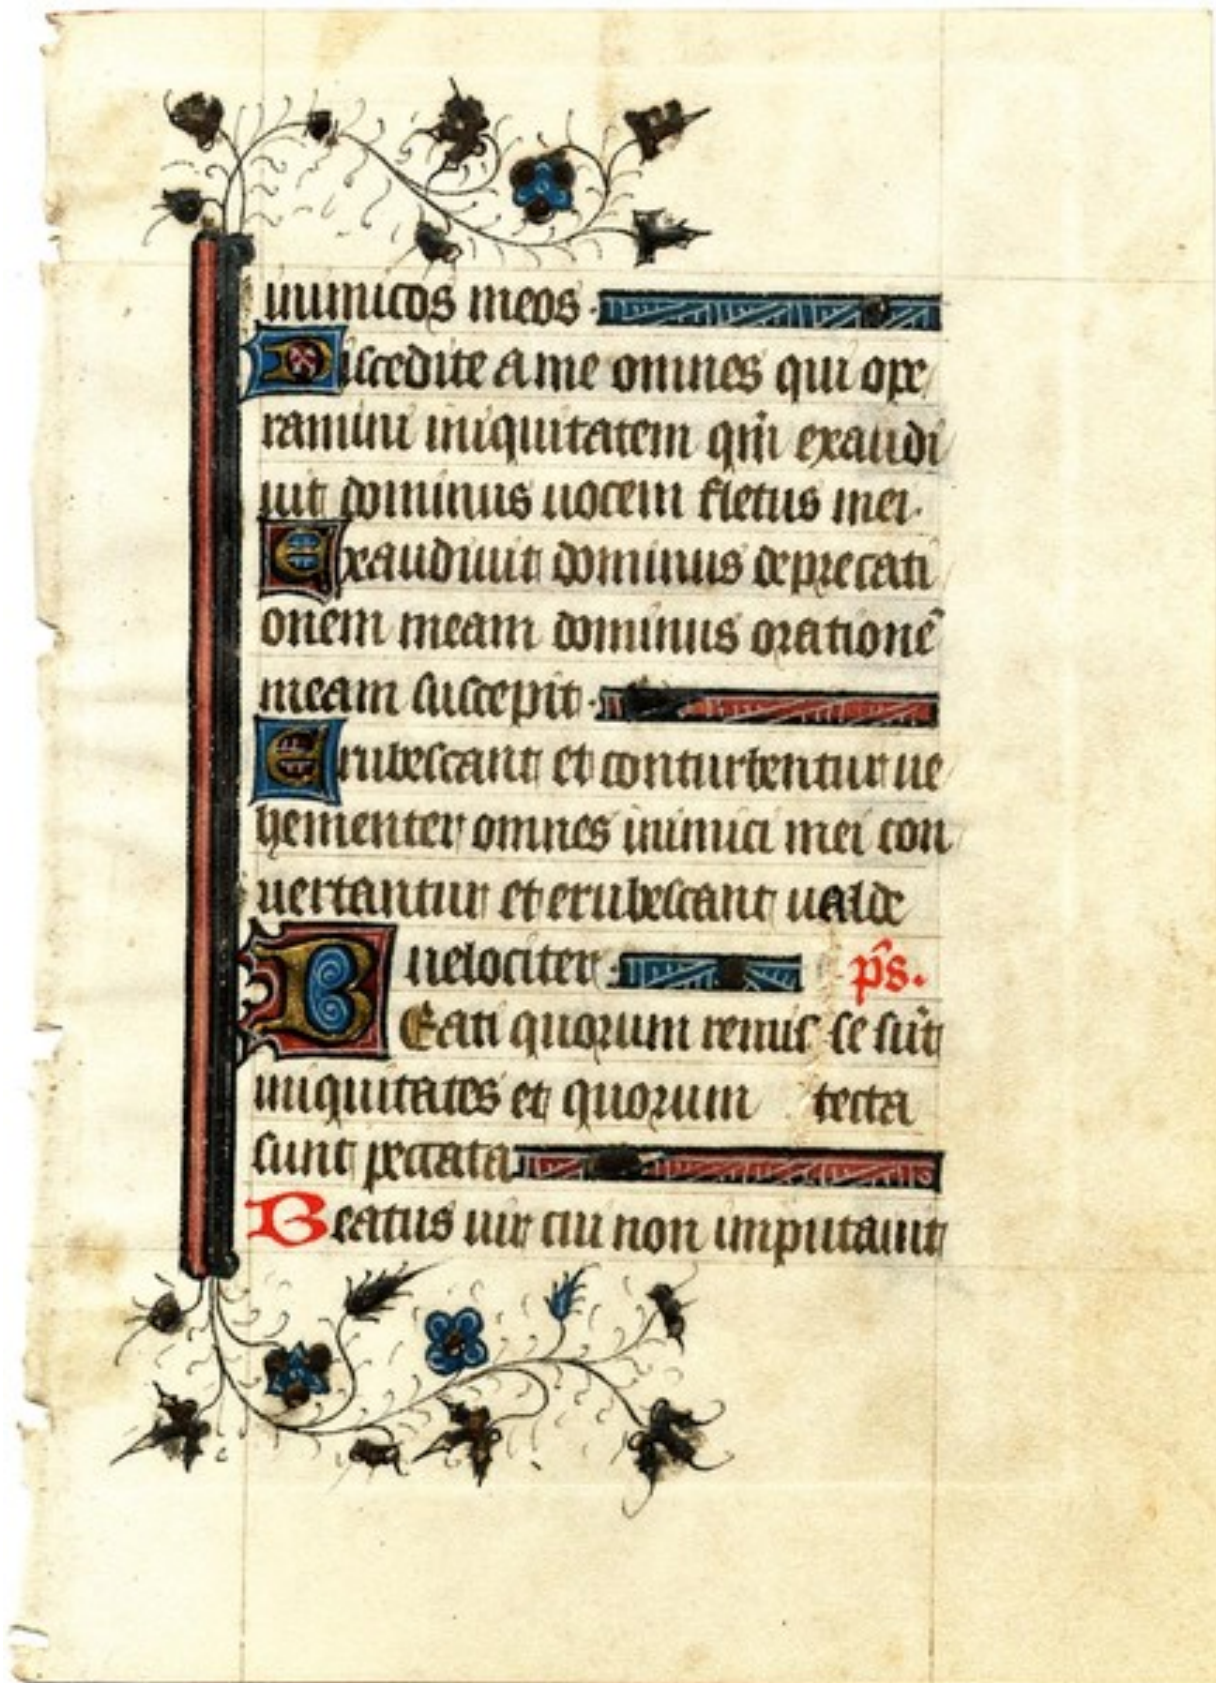 inimicos meos.
Discedite a me omnes qui ope
ramini iniquitatem qm̄ exaudi
uit dominus uocem fletus mei.
Exaudiuit dominus deprecati
onem meam dominus orationē
meam suscepit.
Erubescant et conturbentur ue
hementer omnes inimici mei con
uertantur et erubescant ualde
uelociter. p̄s.
BEati quorum remis se sūt
iniquitates et quorum tecta
sunt peccata
Beatus uir cui non imputauit